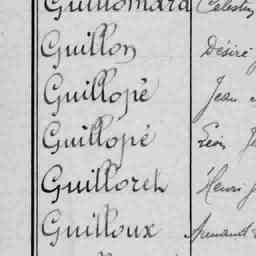 Guillomard Célestin
Guillon Désiré
Guillopé Jean
Guillopé Léon
Guilloreh Henri
Guilloux Armand